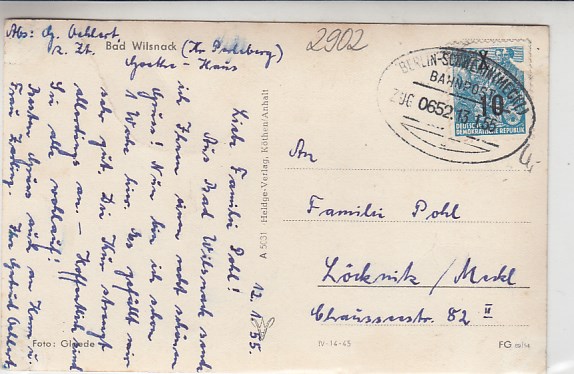 Abs: G. Oehlert
z. Zt. Bad Wilsnack (Kr. Perleberg)
Goethe-Haus
2902
12. 1. 55.
Liebe Familie Pohl!
Aus Bad Wilsnack sende
ich Ihnen einen recht schönen
Gruss! Nun bin ich schon
1 Woche hier. Es gefällt mir
sehr gut. Die Kur strengt
allerdings an. – Hoffentlich sind
Sie alle wohlauf!
Herzl. Gruss auch an Herrn u.
Frau
Ihre Gertrud Oehlert
Foto: Gloede
A 5031 Heldge-Verlag, Köthen/Anhalt
BERLIN-SCHWERIN (MECKL)
BAHNPOST
ZUG 0652
10
DEUTSCHE
DEMOKRATISCHE REPUBLIK
An
Familie Pohl
Löcknitz / Meckl
Chausseestr. 82 II
IV-14-45
FG